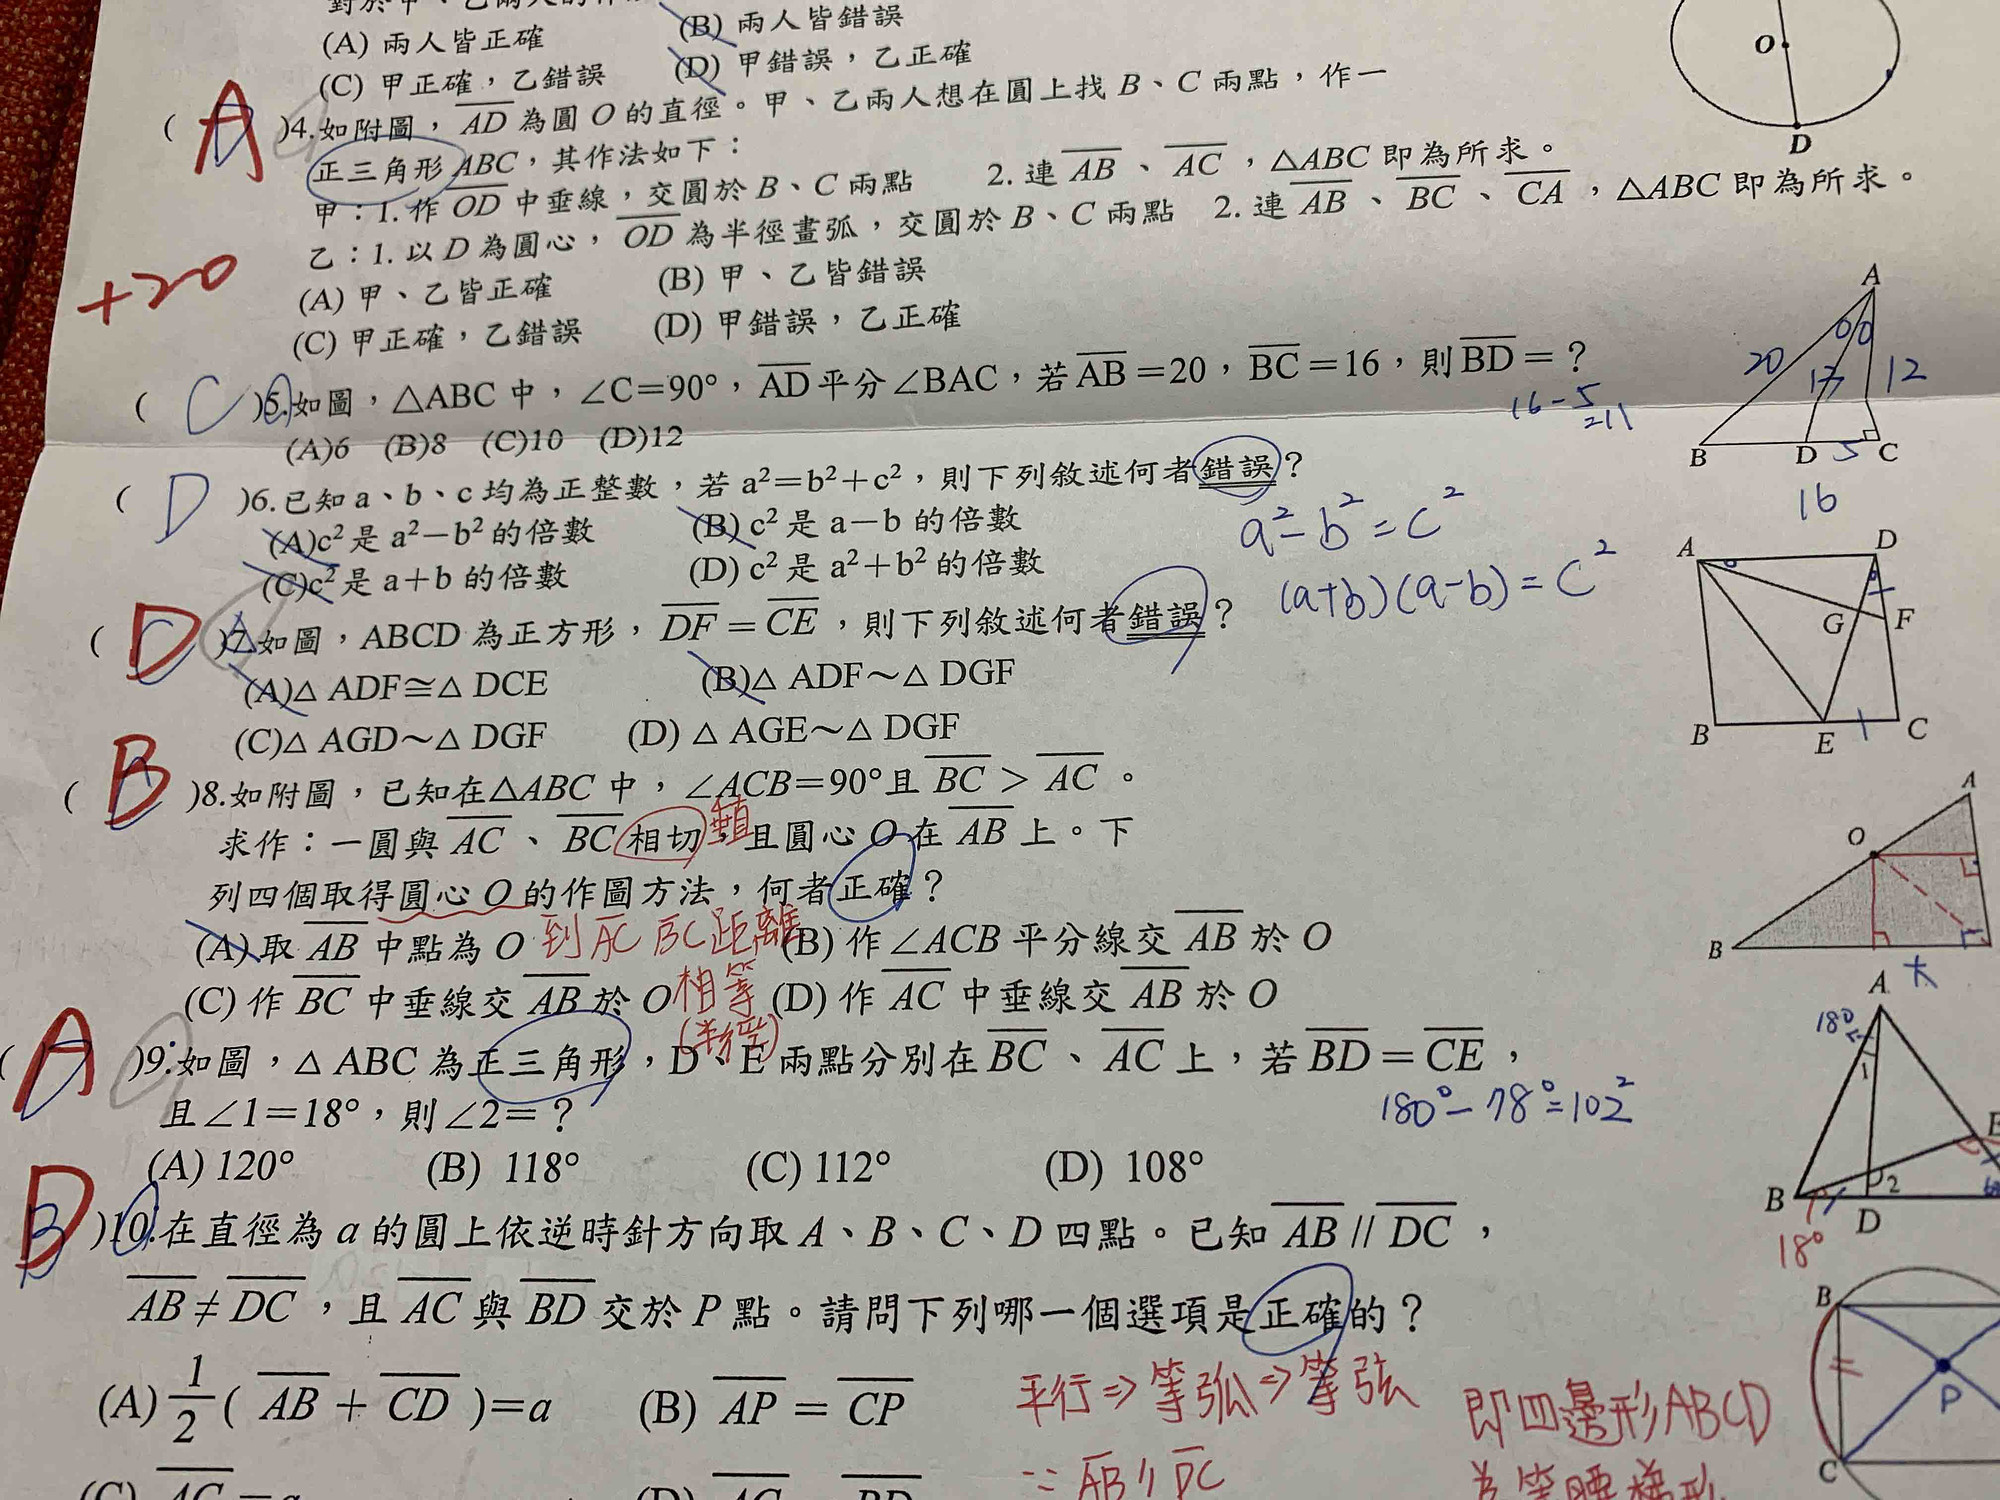 (A) 兩人皆正確 (B) 兩人皆錯誤
(C) 甲正確，乙錯誤 (D) 甲錯誤，乙正確
O
D
( A )4.如附圖，AD 為圓 O 的直徑。甲、乙兩人想在圓上找 B、C 兩點，作一
正三角形 ABC，其作法如下：
甲：1. 作 OD 中垂線，交圓於 B、C 兩點 2. 連 AB、AC，△ABC 即為所求。
乙：1. 以 D 為圓心，OD 為半徑畫弧，交圓於 B、C 兩點 2. 連 AB、BC、CA，△ABC 即為所求。
+20
(A) 甲、乙皆正確 (B) 甲、乙皆錯誤
(C) 甲正確，乙錯誤 (D) 甲錯誤，乙正確
( C )5.如圖，△ABC 中，∠C=90°，AD 平分∠BAC，若 AB=20，BC=16，則 BD=？
16-5
=11
(A)6 (B)8 (C)10 (D)12
A
20
12
B D 5 C
16
( D )6.已知 a、b、c 均為正整數，若 a²=b²+c²，則下列敘述何者錯誤？
(A)c² 是 a²-b² 的倍數 (B) c² 是 a-b 的倍數
(C)c² 是 a+b 的倍數 (D) c² 是 a²+b² 的倍數
a²-b²=c²
(a+b)(a-b)=c²
( D )7.如圖，ABCD 為正方形，DF=CE，則下列敘述何者錯誤？
(A)△ ADF≅△ DCE (B)△ ADF～△ DGF
(C)△ AGD～△ DGF (D) △ AGE～△ DGF
A D
G F
B E C
( B )8.如附圖，已知在△ABC 中，∠ACB=90°且 BC > AC。
求作：一圓與 AC、BC 相切，且圓心 O 在 AB 上。下
列四個取得圓心 O 的作圖方法，何者正確？
(A) 取 AB 中點為 O 到 AC BC 距離 (B) 作∠ACB 平分線交 AB 於 O
(C) 作 BC 中垂線交 AB 於 O 相等 (D) 作 AC 中垂線交 AB 於 O
(半徑)
A
O
B
( A )9.如圖，△ ABC 為正三角形，D、E 兩點分別在 BC、AC 上，若 BD=CE，
且∠1=18°，則∠2=？
180°-78°=102°
(A) 120° (B) 118° (C) 112° (D) 108°
A
18°
1
E
B 2
D
18°
D )10.在直徑為 a 的圓上依逆時針方向取 A、B、C、D 四點。已知 AB // DC，
AB≠DC，且 AC 與 BD 交於 P 點。請問下列哪一個選項是正確的？
(A) 1/2 ( AB + CD )=a (B) AP = CP
平行⇒等弧⇒等弦
∵ AB // DC
即四邊形ABCD
為等腰梯形
B
P
C
(C) AC = a (D) AC = BD